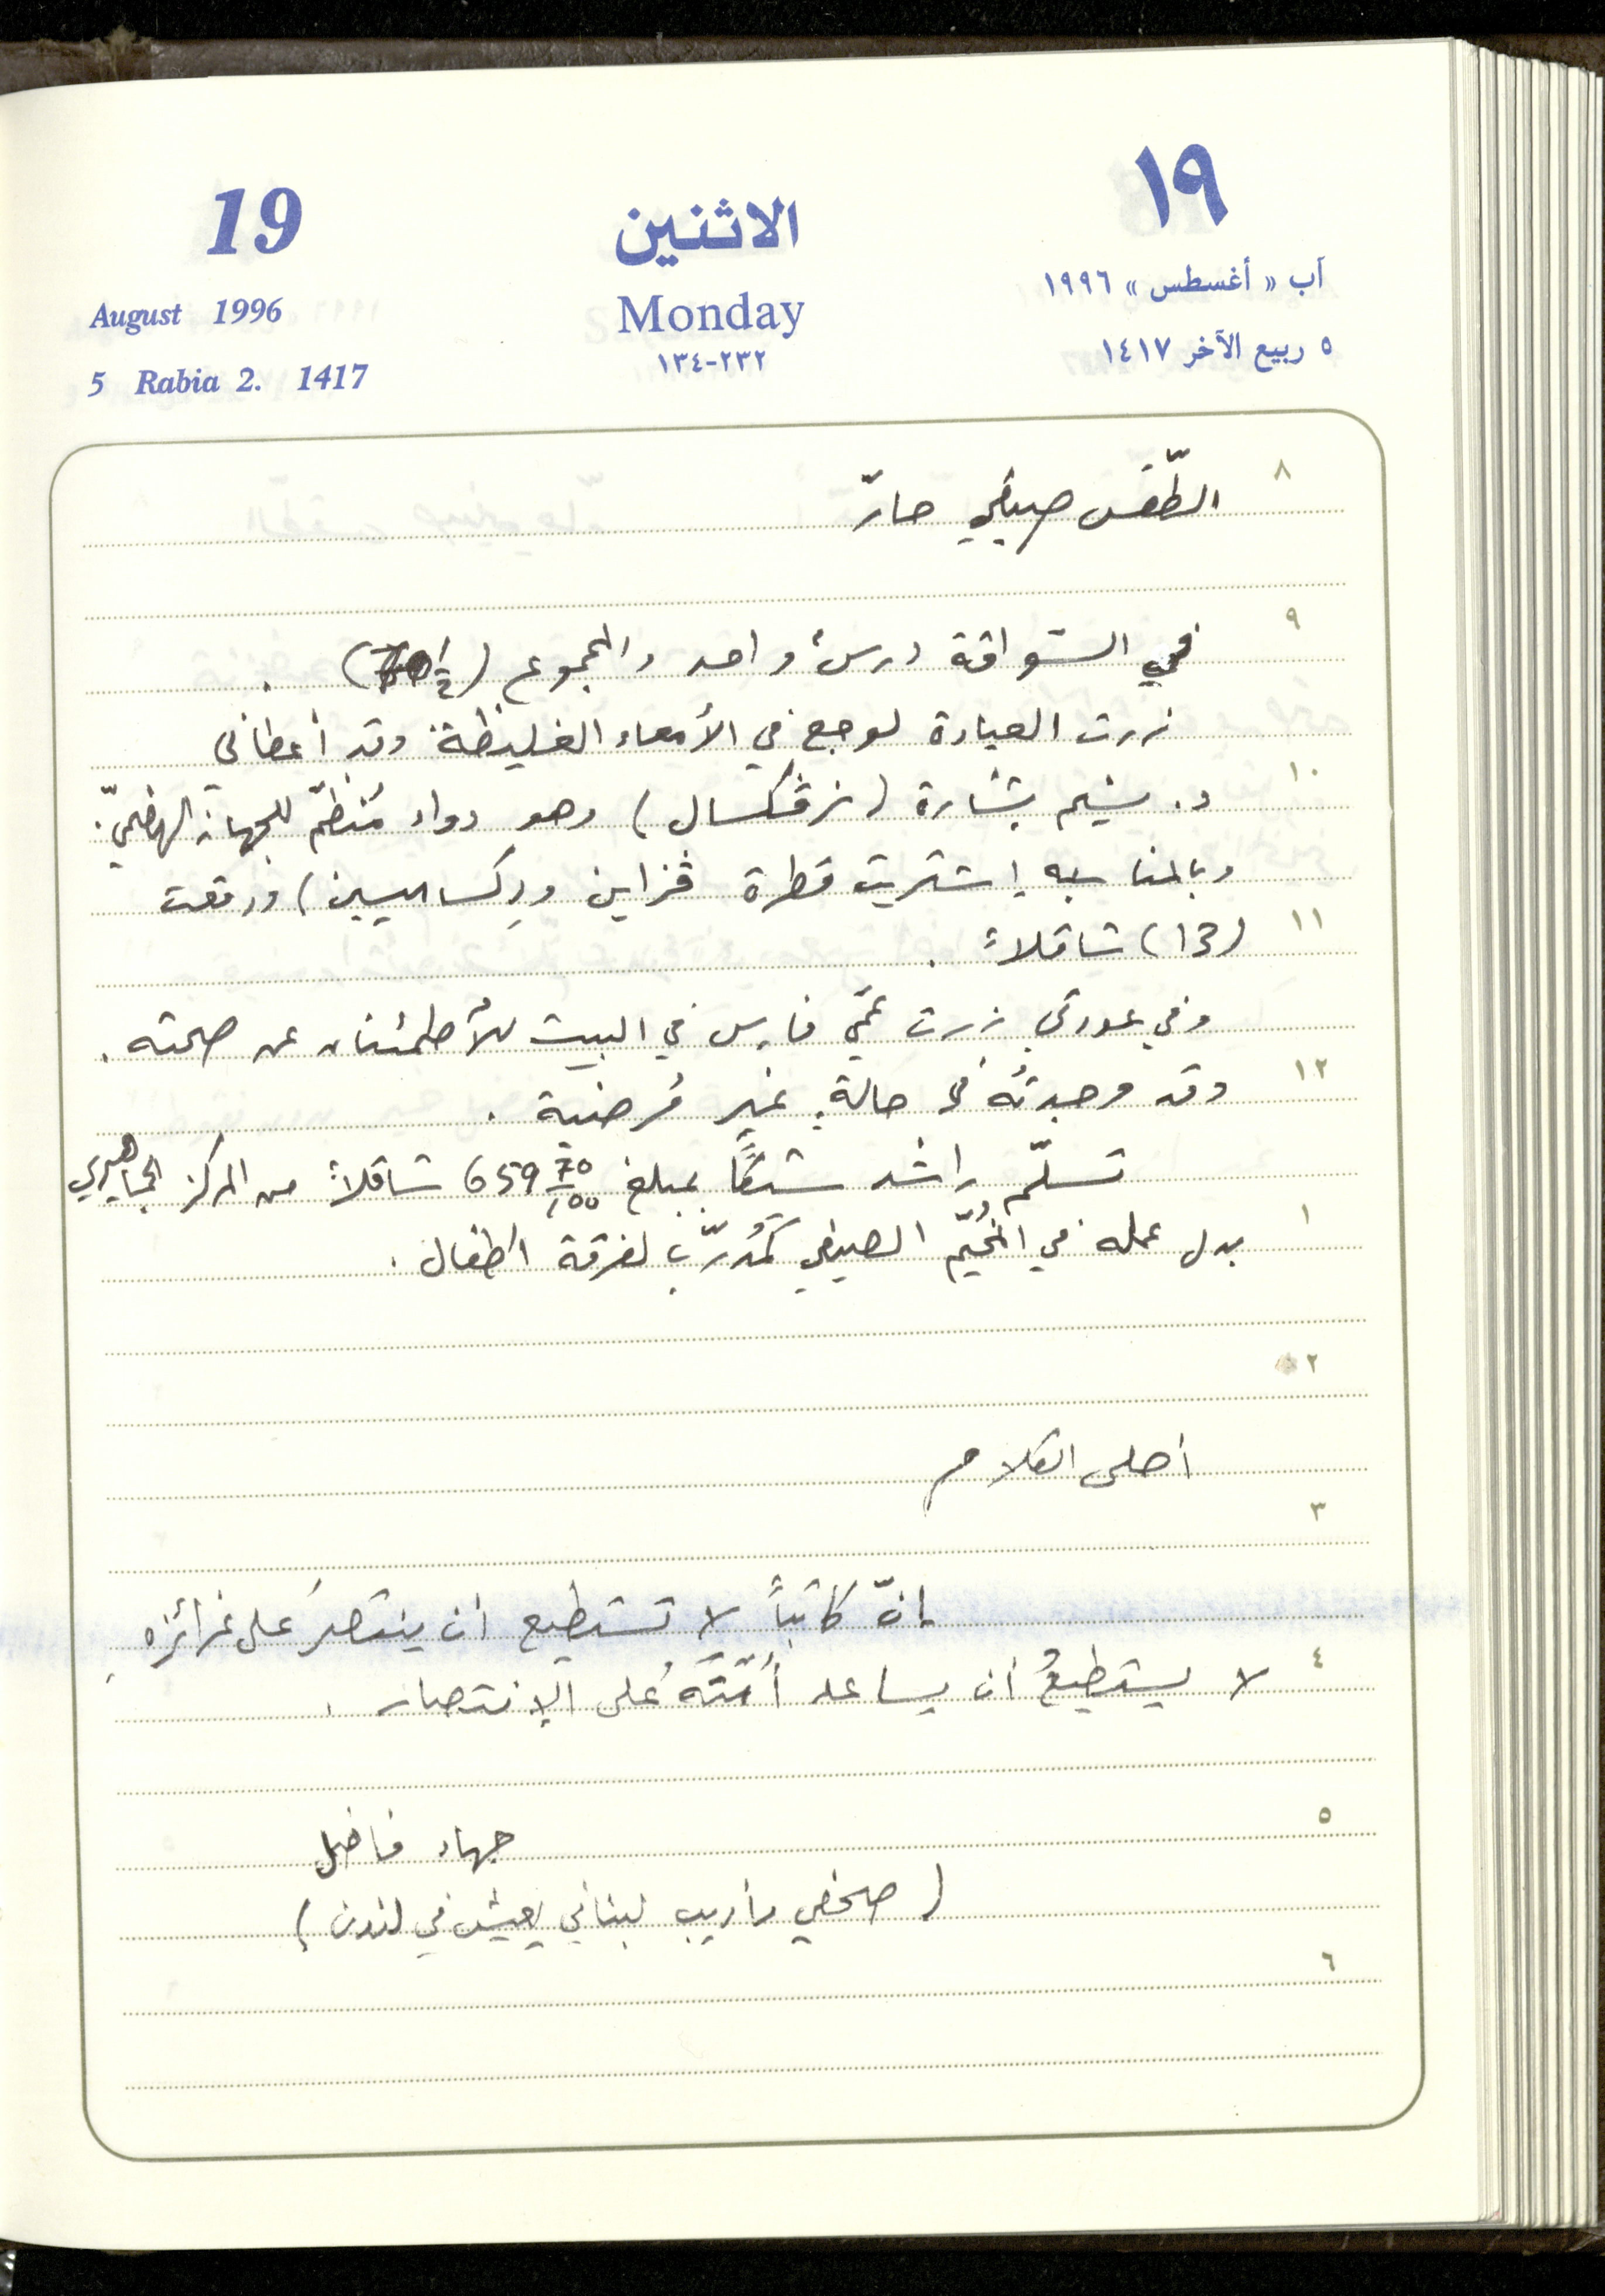 19
الاثنين
١٩
August 1996
Monday
آب « أغسطس » ١٩٩٦
5 Rabia 2. 1417
٢٣٢-١٣٤
٥ ربيع الآخر ١٤١٧
٨
الطّقس صيفي حارّ
٩
في السّواقة درسٌ واحد والمجموع
زرت العيادة لوجع في الأمعاء الغليظة وقد أعطاني
١٠
د. بشارة (زڤكسال) وهو دواء مُنظّم للجهاز الهضميّ.
وبالمناسبه إشتريت قطرة ڤزاين ودفعت
١١
(13) شاقلاً.
وفي عودتي زرت عمّي فارس في البيت للأطمئنان عن صحته.
١٢
وقد وجدتُه في حالة غير مُرضية.
تسلّم راشد شيكًا بمبلغ 659 70/100 شاقلاً من المركز الجماهيري
١
بدل عمله في المُخيّم الصيفي كمُدرّب لفرقة اطفال.
٢
أحلى الكلام
٣
إنّ كاتباً لا تستطيع ان ينتصرَ على غرائزه
٤
لا يستطيعُ أن يساعد أُمّتَهُ على الإنتصار.
٥
جهاد فاضل
(صحفي وأديب لبناني يعيش في لندن)
٦